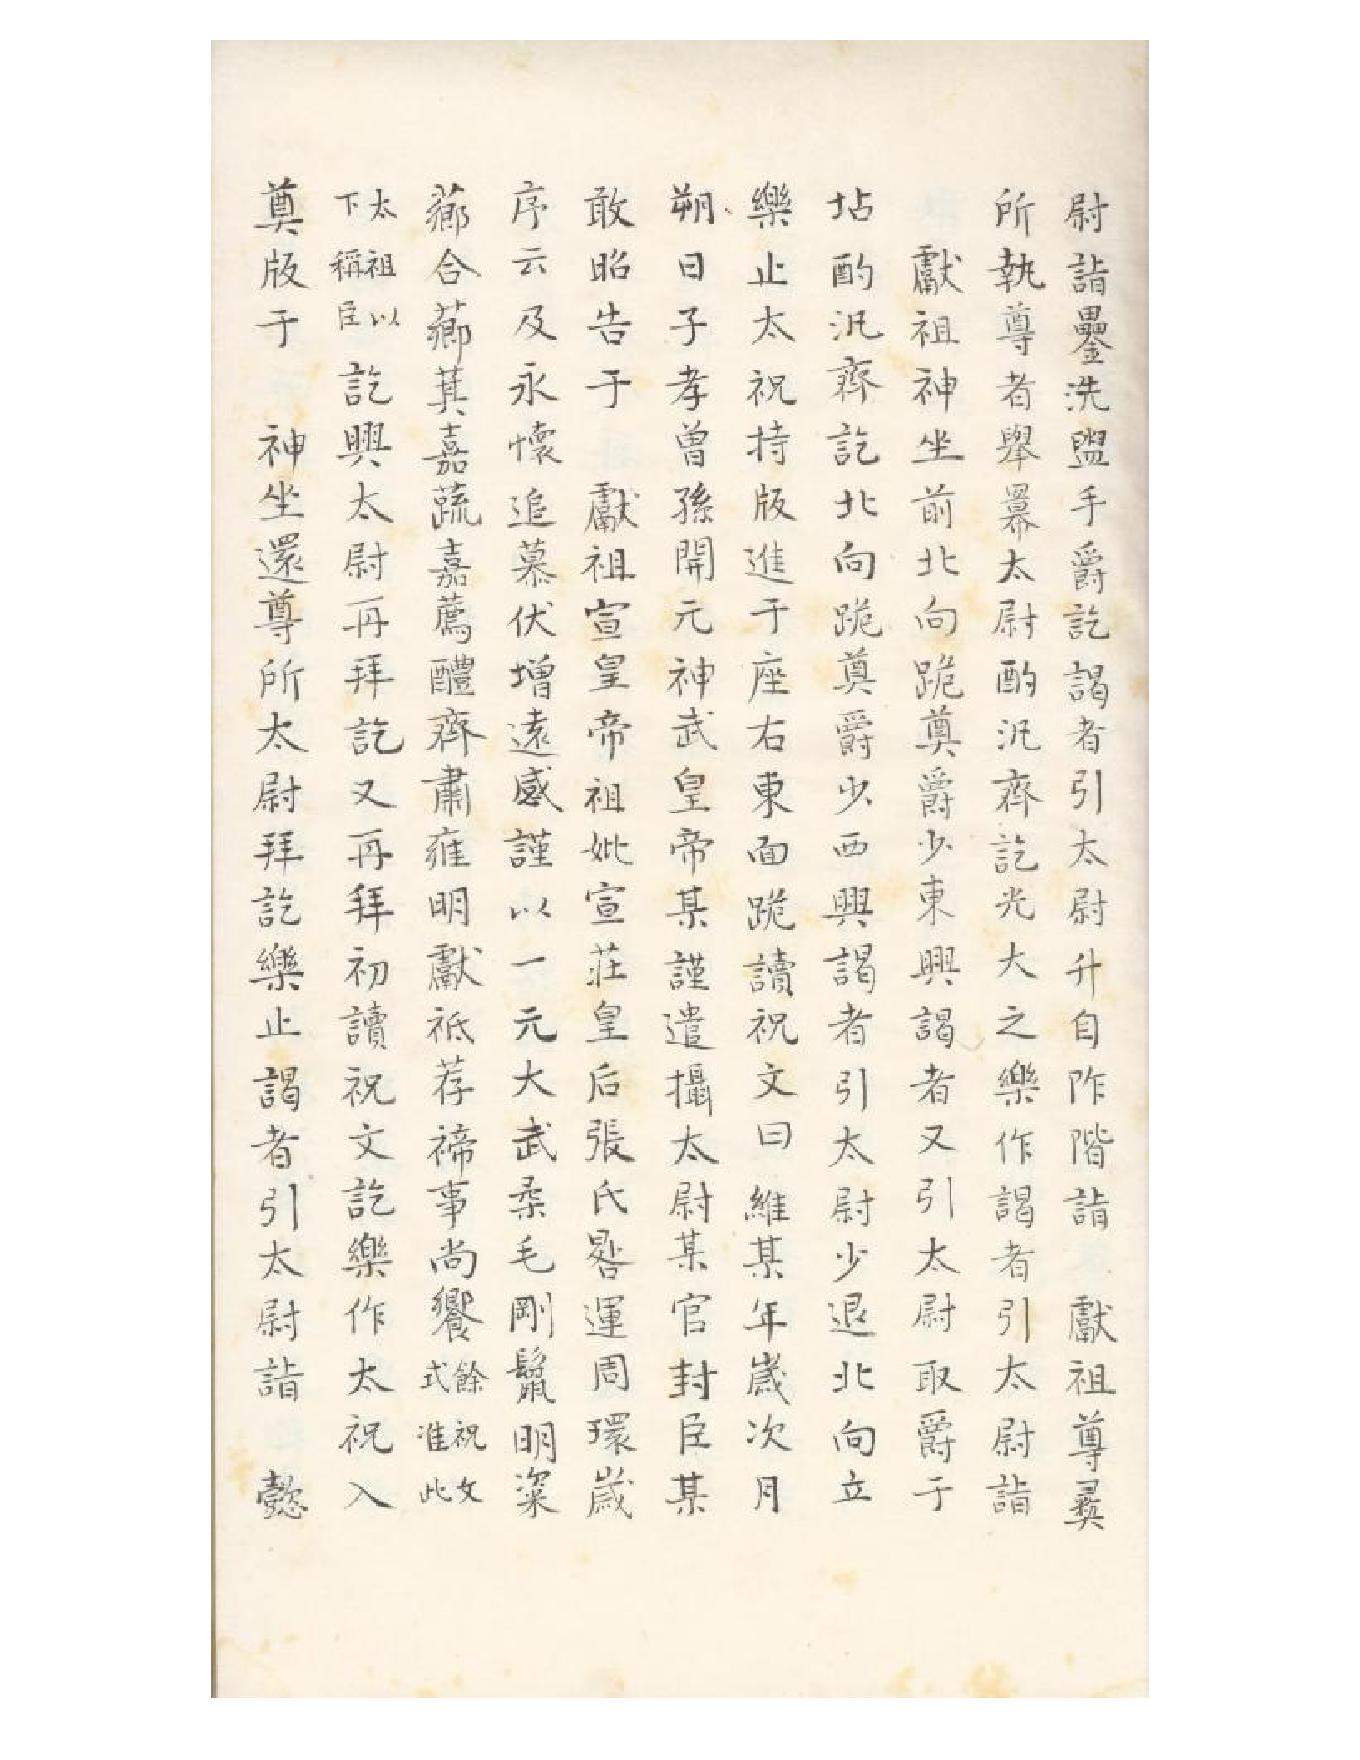 尉詣罍洗盥手爵訖謁者引太尉升自阼階詣　獻祖尊彝
所執尊者舉羃太尉酌汎齊訖光大之樂作謁者引太尉詣
　獻祖神坐前北向跪奠爵少東興謁者又引太尉取爵于
坫酌汎齊訖北向跪奠爵少西興謁者引太尉少退北向立
樂止太祝持版進于座右東面跪讀祝文曰維某年歲次月
朔日子孝曾孫開元神武皇帝某謹遣攝太尉某官封臣某
敢昭告于　獻祖宣皇帝祖妣宣莊皇后張氏晷運周環歲
序云及永懷追慕伏增遠感謹以一元大武柔毛剛鬣明粢
薌合薌萁嘉蔬嘉薦醴齊肅雍明獻祗荐禘事尚饗餘祝文式准此
太祖以下稱臣訖興太尉再拜訖又再拜初讀祝文訖樂作太祝入
奠版于　神坐還尊所太尉拜訖樂止謁者引太尉詣　懿